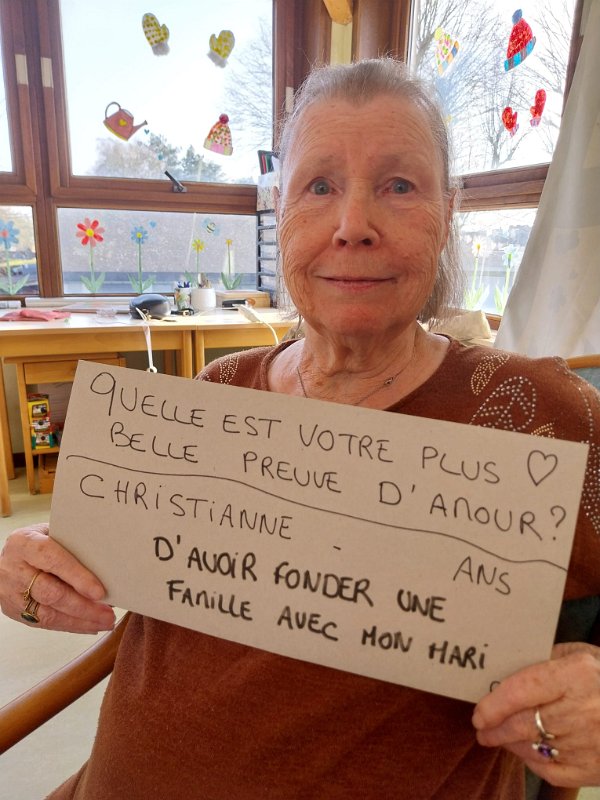 QUELLE EST VOTRE PLUS ♡
BELLE PREUVE D'AMOUR?
CHRISTIANNE - ANS
D'AVOIR FONDER UNE
FAMILLE AVEC MON MARI